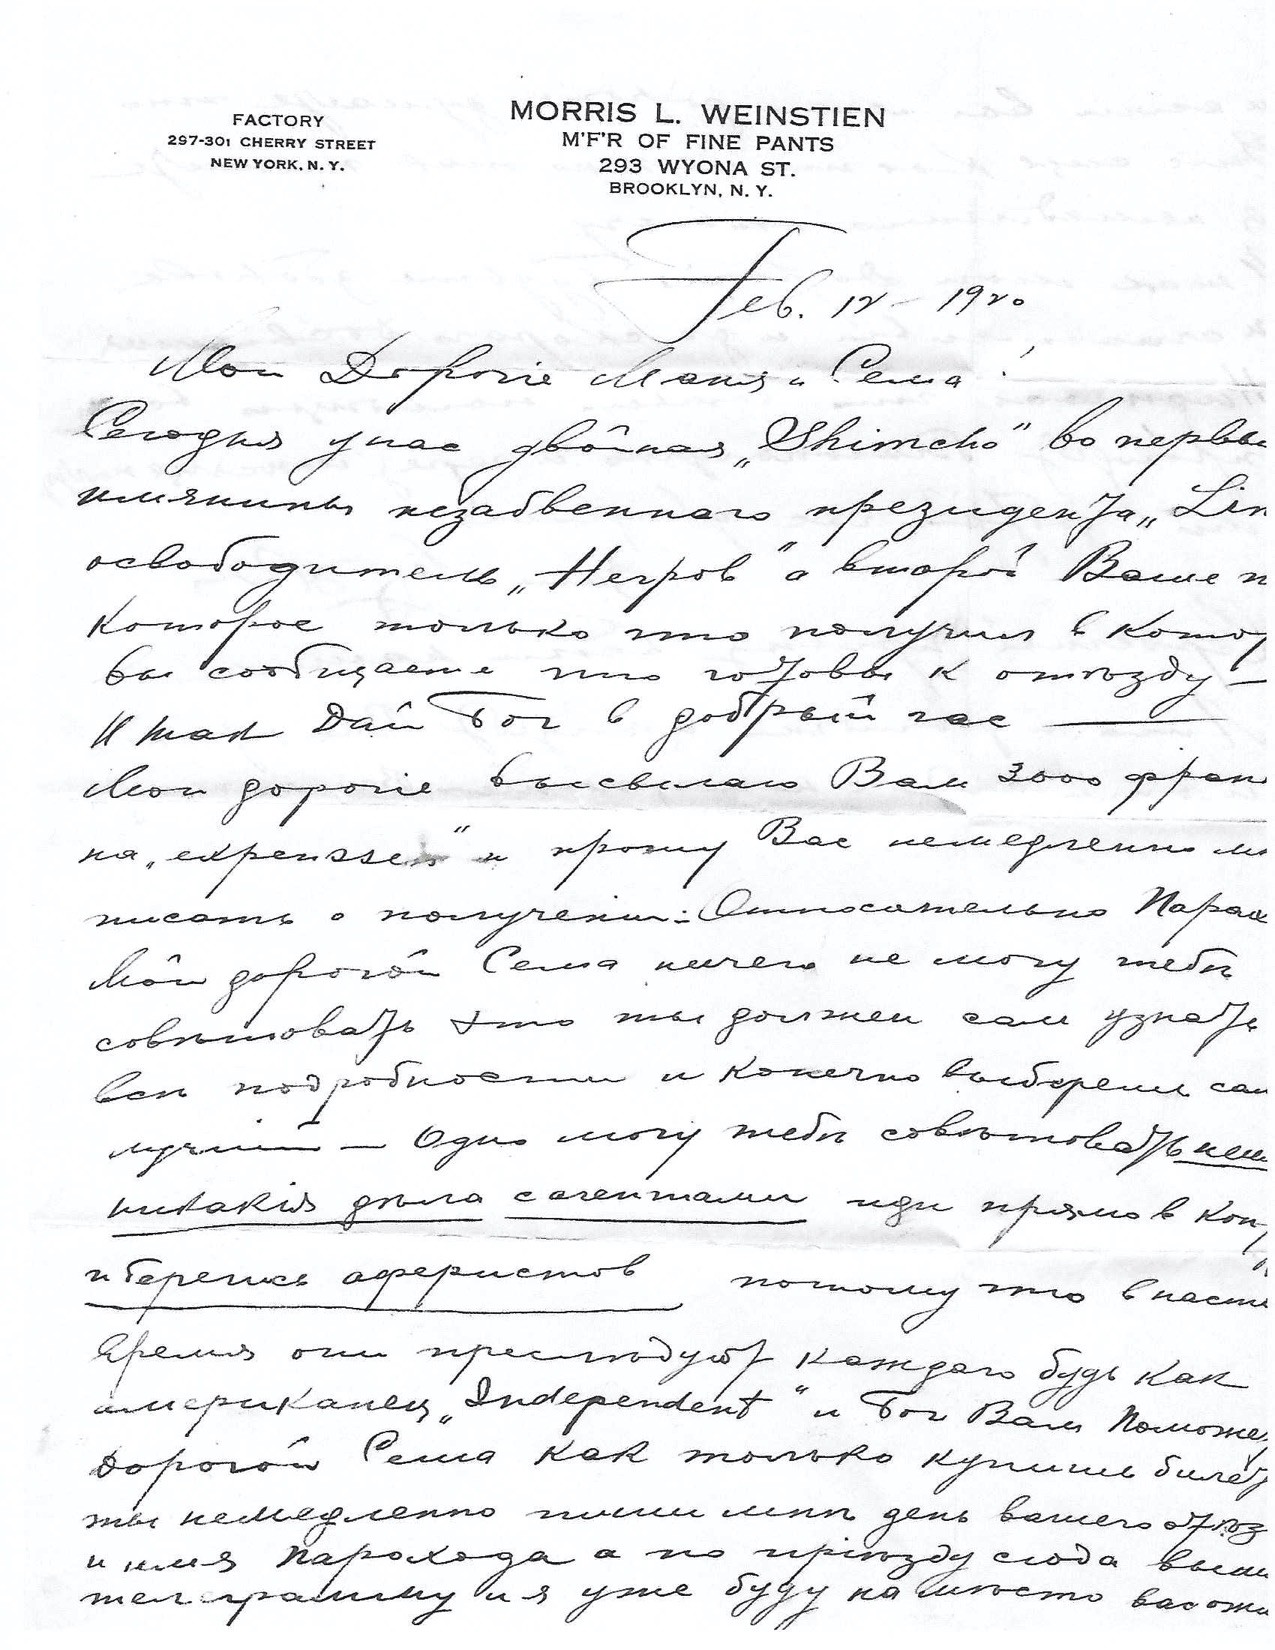 FACTORY
297-301 CHERRY STREET
NEW YORK, N. Y.
MORRIS L. WEINSTIEN
M'F'R OF FINE PANTS
293 WYONA ST.
BROOKLYN, N. Y.
Feb. 12 - 1920
Мои Дорогіе Маня и Сема!
Сегодня у нас двойная „Shimcho" во первы
имянины незабвеннаго президента „Lin
освободитель „Негров" а второй Ваше п
которое только что получил в котор
вы сообщаете что готовы к отъѣзду —
И так Дай Бог в добрый час —
Мои дорогіе высылаю Вам 3000 фран
на „expensses" и прошу Вас немедленно м
писать о полученіи: Относительно Парах
Мой дорогой Сема ничего не могу тебѣ
совѣтовать это ты должен сам узнать
всѣ подробности и конечно выбереш сам
лучшій — Одно могу тебѣ совѣтовать
никакія дѣла с агентами иди прямо в Кон
и берегись аферистов потому что в насто
время они преслѣдуют каждаго будь как
американец „Independent" и Бог Вам Поможе
Дорогой Сема как только купишь билет
ты немедленно пиши мнѣ день вашего отъѣз
и имя парохода а по пріѣзду сюда вышл
телеграмму и я уже буду на мѣсто вас ожи